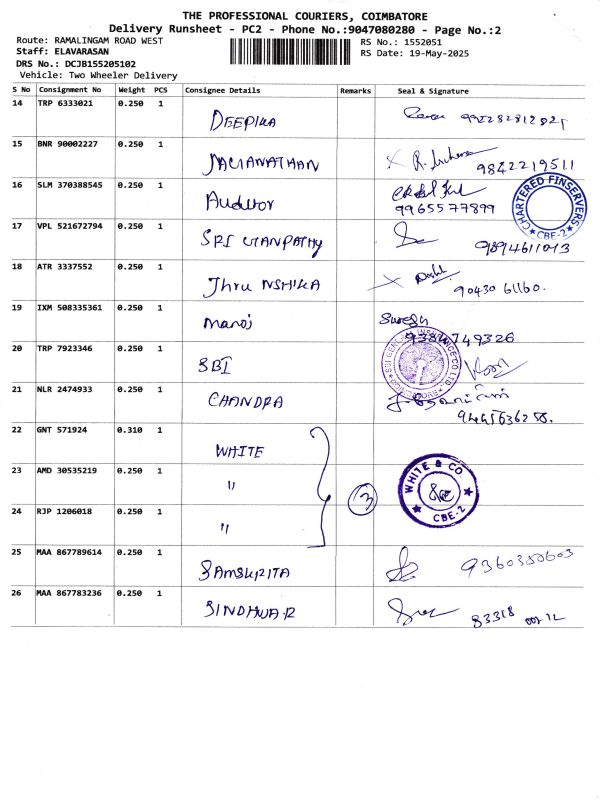 THE PROFESSIONAL COURIERS, COIMBATORE
Delivery Runsheet - PC2 - Phone No.:9047080280 - Page No.:2
Route: RAMALINGAM ROAD WEST RS No.: 1552051
Staff: ELAVARASAN RS Date: 19-May-2025
DRS No.: DCJB155205102
Vehicle: Two Wheeler Delivery
S No Consignment No Weight PCS Consignee Details Remarks Seal & Signature
14 TRP 6333021 0.250 1
DEEPIKA
15 BNR 90002227 0.250 1
9842219511
16 SLM 370388545 0.250 1
Auditor
9965577899
CHARTERED FINSERVERS
CBE-2
17 VPL 521672794 0.250 1
SRI
9894611013
18 ATR 3337552 0.250 1
Thru NSHIKA
90430 61160.
19 IXM 508335361 0.250 1
Manoj
9384749326
20 TRP 7923346 0.250 1
SBI
SBI GENERAL INSURANCE CO LTD.
21 NLR 2474933 0.250 1
CHANDRA
22 GNT 571924 0.310 1
WHITE
23 AMD 30535219 0.250 1
"
3
WHITE & CO
CBE-2
24 RJP 1206018 0.250 1
"
25 MAA 867789614 0.250 1
SAMSKRITA
9360350603
26 MAA 867783236 0.250 1
83318